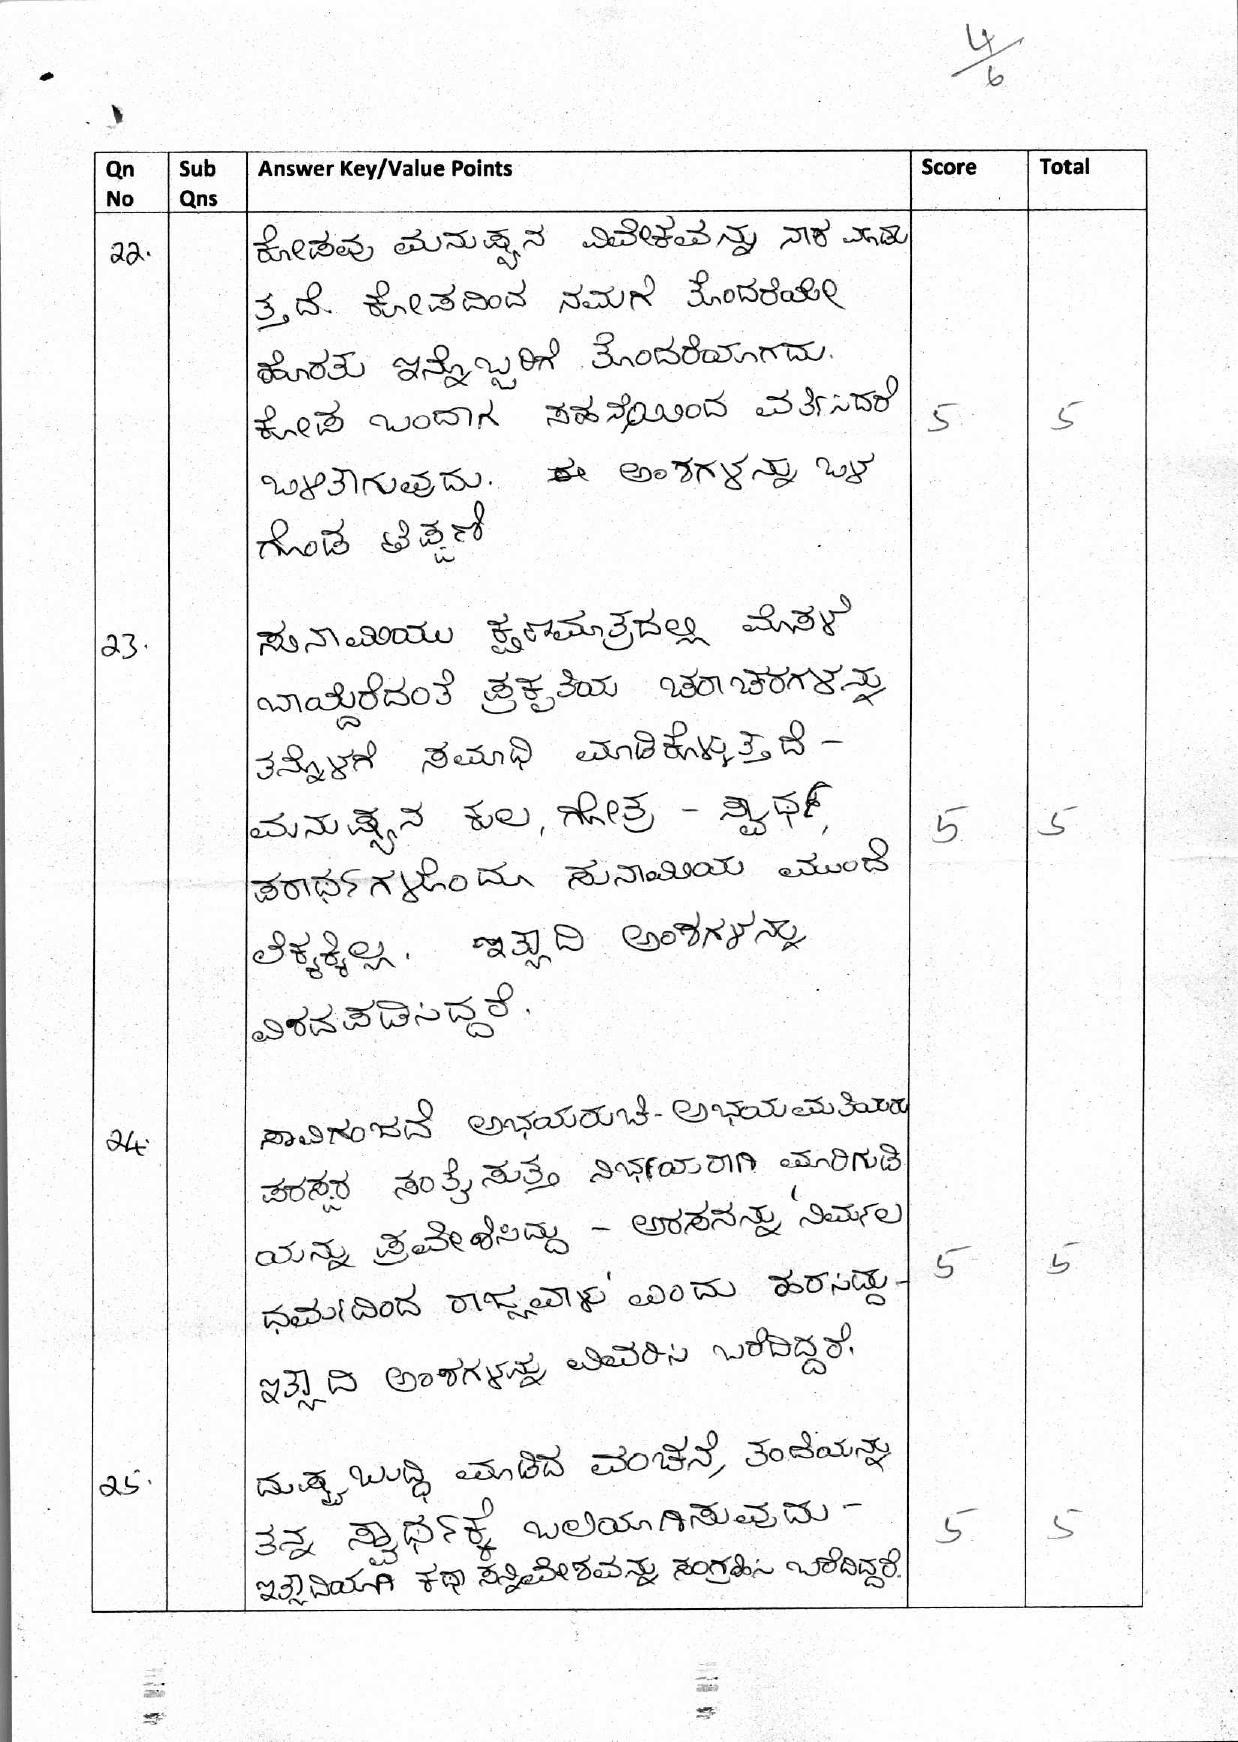 4/6
Qn No Sub Qns Answer Key/Value Points Score Total
22. ಕೋಪವು ಮನುಷ್ಯನ ವಿವೇಕವನ್ನು ನಾಶ ಮಾಡು
ತ್ತದೆ. ಕೋಪದಿಂದ ನಮಗೆ ತೊಂದರೆಯೇ
ಹೊರತು ಇನ್ನೊಬ್ಬರಿಗೆ ತೊಂದರೆಯಾಗದು.
ಕೋಪ ಬಂದಾಗ ಸಹನೆಯಿಂದ ವರ್ತಿಸಿದರೆ 5 5
ಒಳಿತಾಗುವುದು. ಈ ಅಂಶಗಳನ್ನು ಒಳ
ಗೊಂಡ ಟಿಪ್ಪಣಿ
23. ಸುನಾಮಿಯು ಕ್ಷಣಮಾತ್ರದಲ್ಲಿ ಮೊಸಳೆ
ಬಾಯ್ದೆರೆದಂತೆ ಪ್ರಕೃತಿಯ ಚರಾಚರಗಳನ್ನು
ತನ್ನೊಳಗೆ ಸಮಾಧಿ ಮಾಡಿಕೊಳ್ಳುತ್ತದೆ -
ಮನುಷ್ಯನ ಕುಲ, ಗೋತ್ರ - ಸ್ವಾರ್ಥ, 5 5
ಪರಾರ್ಥಗಳೊಂದೂ ಸುನಾಮಿಯ ಮುಂದೆ
ಲೆಕ್ಕಕ್ಕಿಲ್ಲ. ಇತ್ಯಾದಿ ಅಂಶಗಳನ್ನು
ವಿಶದಪಡಿಸಿದ್ದರೆ.
24. ಸಾವಿಗಂಜದೆ ಅಭಯರುಚಿ-ಅಭಯಮತಿಯರು
ಪರಸ್ಪರ ಸಂತೈಸುತ್ತ ನಿರ್ಭಯರಾಗಿ ಮಾರಿಗುಡಿ
ಯನ್ನು ಪ್ರವೇಶಿಸಿದ್ದು - ಅರಸನನ್ನು 'ನಿರ್ಮಲ
ಧರ್ಮದಿಂದ ರಾಜ್ಯವಾಳು' ಎಂದು ಹರಸಿದ್ದು- 5 5
ಇತ್ಯಾದಿ ಅಂಶಗಳನ್ನು ವಿವರಿಸಿ ಬರೆದಿದ್ದರೆ.
25. ದುಷ್ಟಬುದ್ಧಿ ಮಾಡಿದ ವಂಚನೆ, ತಂದೆಯನ್ನು
ತನ್ನ ಸ್ವಾರ್ಥಕ್ಕೆ ಬಲಿಯಾಗಿಸುವುದು - 5 5
ಇತ್ಯಾದಿಯಾಗಿ ಕಥಾ ಸನ್ನಿವೇಶವನ್ನು ಸಂಗ್ರಹಿಸಿ ಬರೆದಿದ್ದರೆ.